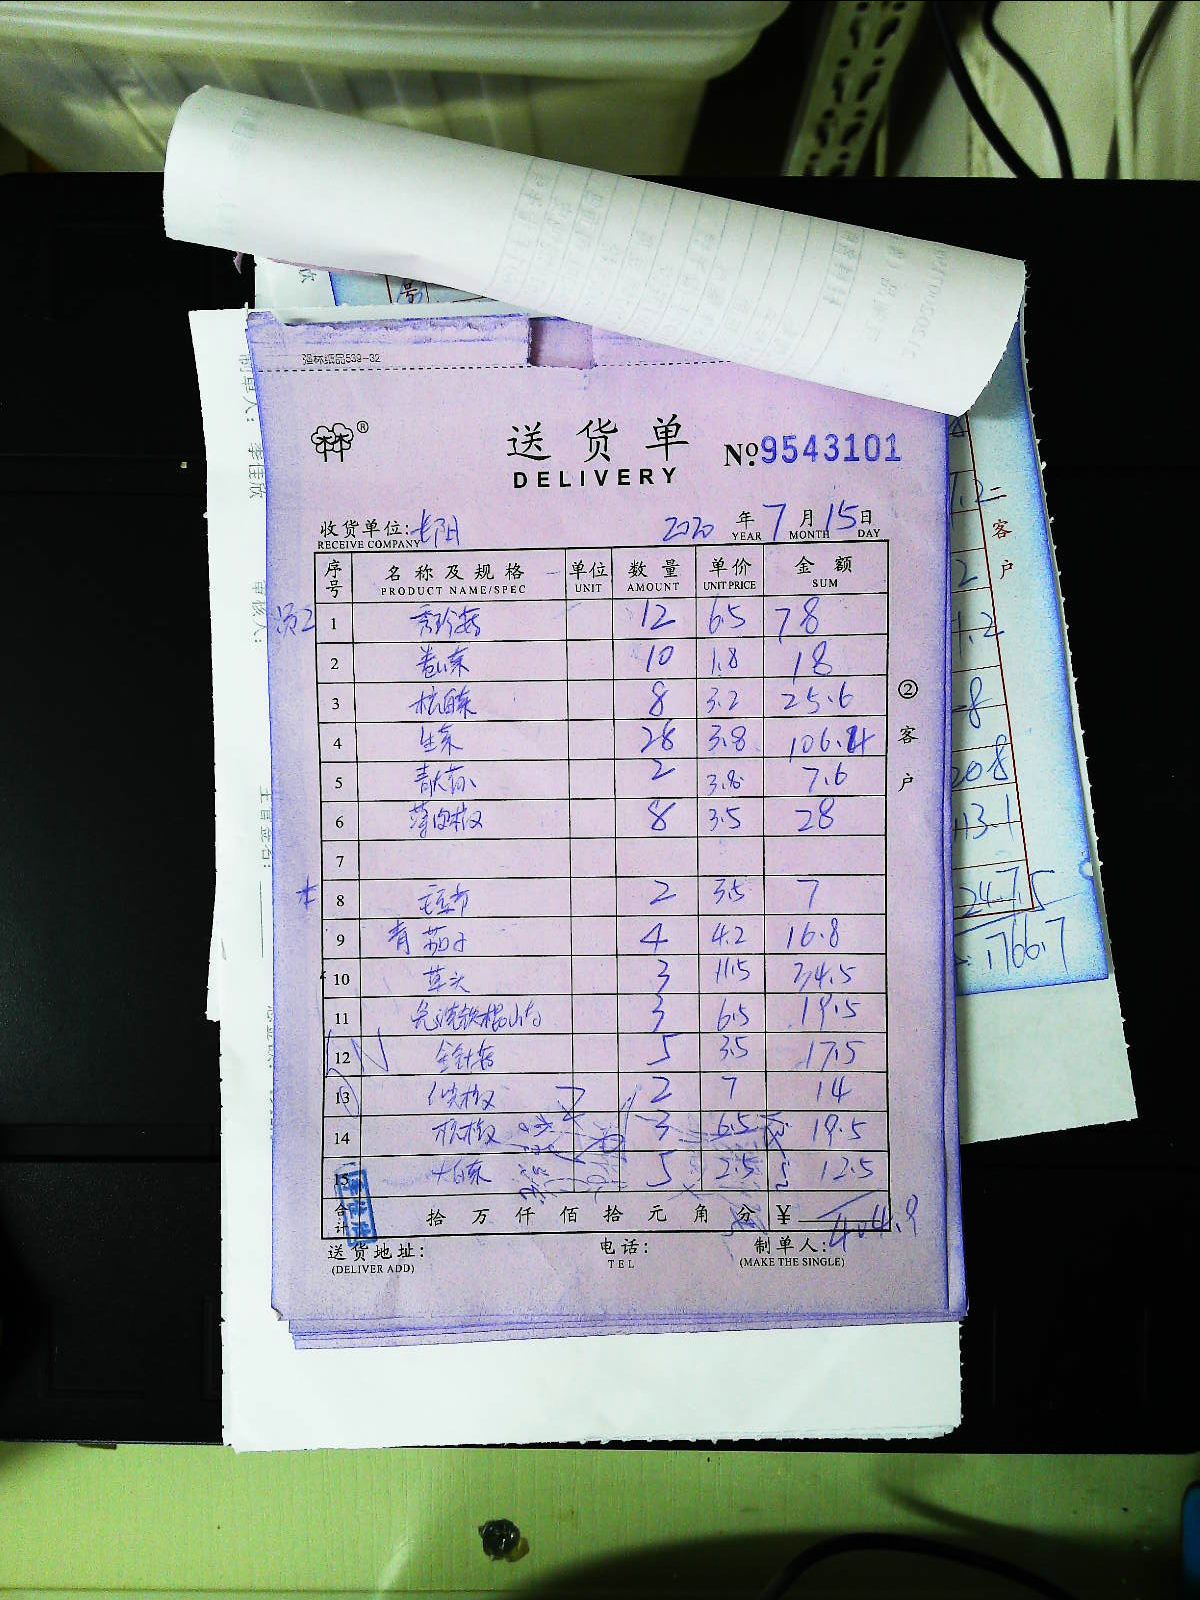 温林纸品539-32
送货单
DELIVERY
No 9543101
收货单位: 长阳 2020 年 7 月 15 日
RECEIVE COMPANY YEAR MONTH DAY
序号 名称及规格 单位 数量 单价 金额
PRODUCT NAME/SPEC UNIT AMOUNT UNIT PRICE SUM
1 秀珍菇 12 6.5 78
2 卷心菜 10 1.8 18
3 杭白菜 8 3.2 25.6
4 生菜 28 3.8 106.4
5 2 3.8 7.6
6 薄皮椒 8 3.5 28
7
8 毛豆节 2 3.5 7
9 青茄子 4 4.2 16.8
10 草头 3 11.5 34.5
11 铁棍山药 3 6.5 19.5
12 金针菇 5 3.5 17.5
13 尖椒 2 7 14
14 杭椒 3 6.5 19.5
15 大白菜 5 2.5 12.5
合计 拾 万 仟 佰 拾 元 角 分 ¥ 404.9
送货地址: 电话: 制单人:
(DELIVER ADD) TEL (MAKE THE SINGLE)
② 客户
二客户
208
113.1
247.5
1766.7
制单人: 李佳欣
审核人:
主管签名: